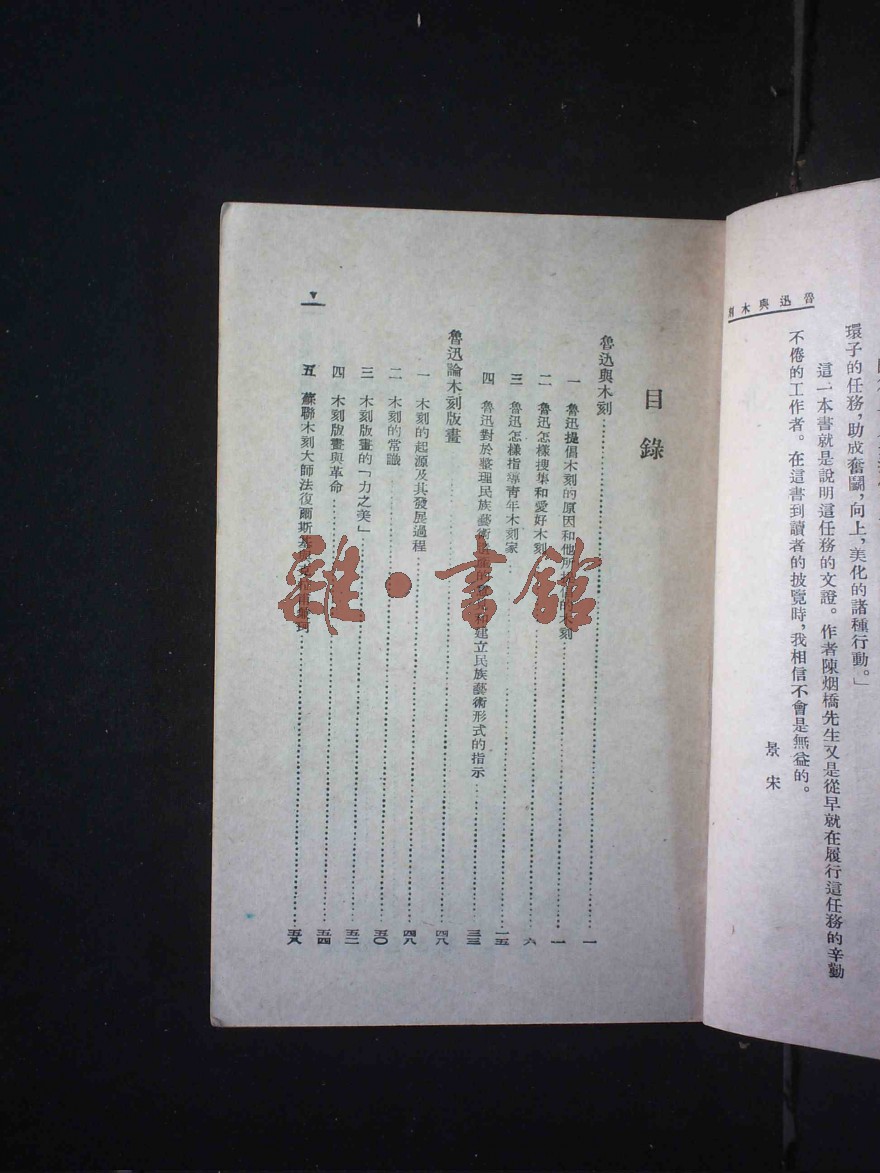 魯迅與木刻
環子的任務，助成奮鬭，向上，美化的諸種行動。」
這一本書就是說明這任務的文證。作者陳烟橋先生又是從早就在履行這任務的辛勤
不倦的工作者。在這書到讀者的披覽時，我相信不會是無益的。
景宋
目錄
魯迅與木刻……一
一 魯迅提倡木刻的原因和他所 的木刻……一
二 魯迅怎樣搜集和愛好木刻……六
三 魯迅怎樣指導靑年木刻家……一五
四 魯迅對於整理民族藝術 建立民族藝術形式的指示……三三
魯迅論木刻版畫……四八
一 木刻的起源及其發展過程……四八
二 木刻的常識……五〇
三 木刻版畫的「力之美」……五二
四 木刻版畫與革命……五四
五 蘇聯木刻大師法復爾斯基 ……五八
雜·書館